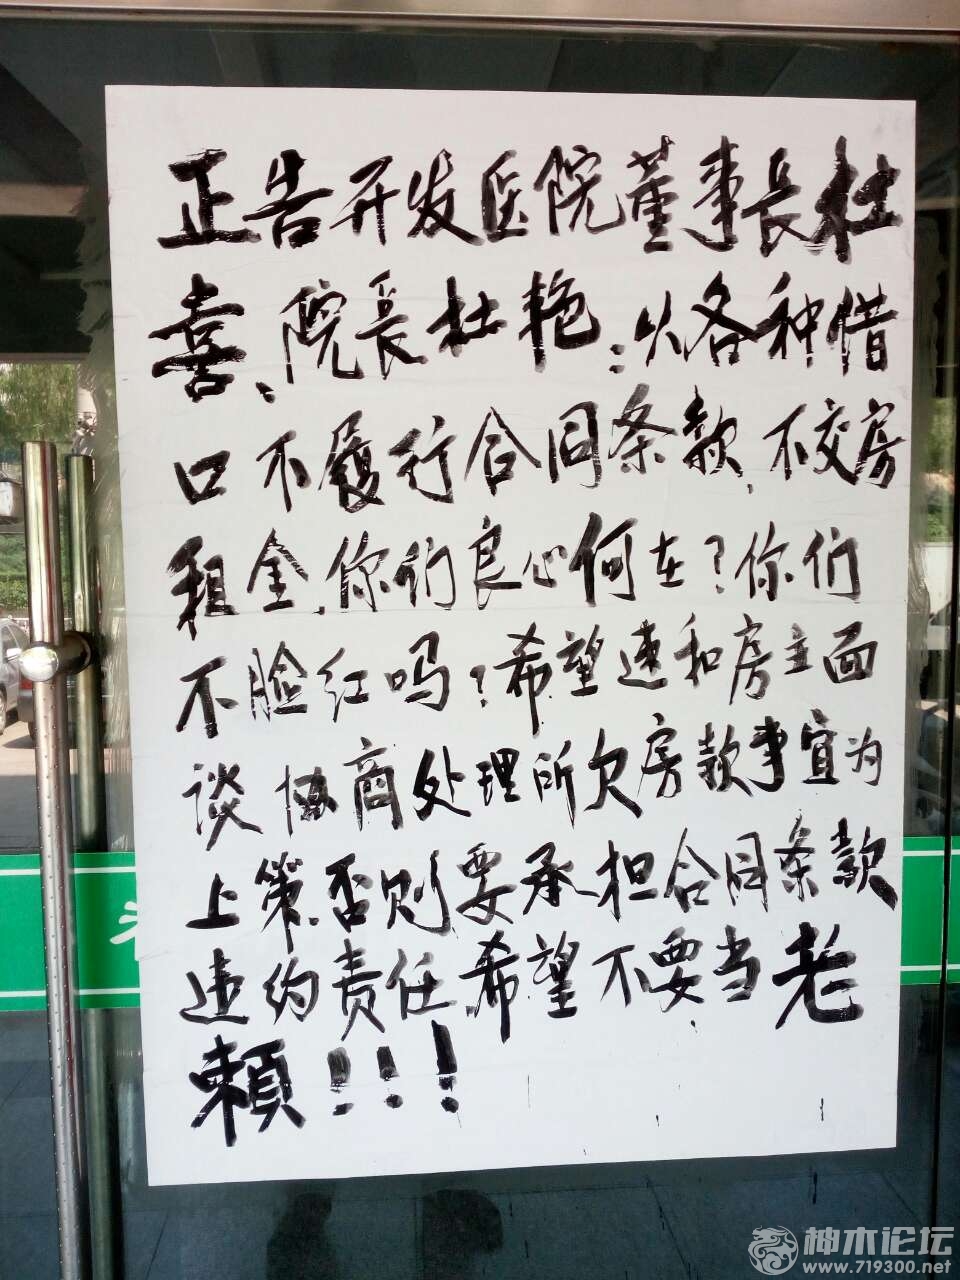 正告开发医院董事长杜
喜、院长杜艳:以各种借
口不履行合同条款,不交房
租金,你们良心何在?你们
不脸红吗?希望速和房主面
谈协商处理所欠房款事宜为
上策,否则要承担合同条款
违约责任,希望不要当老
赖!!!
神木论坛
www.719300.net